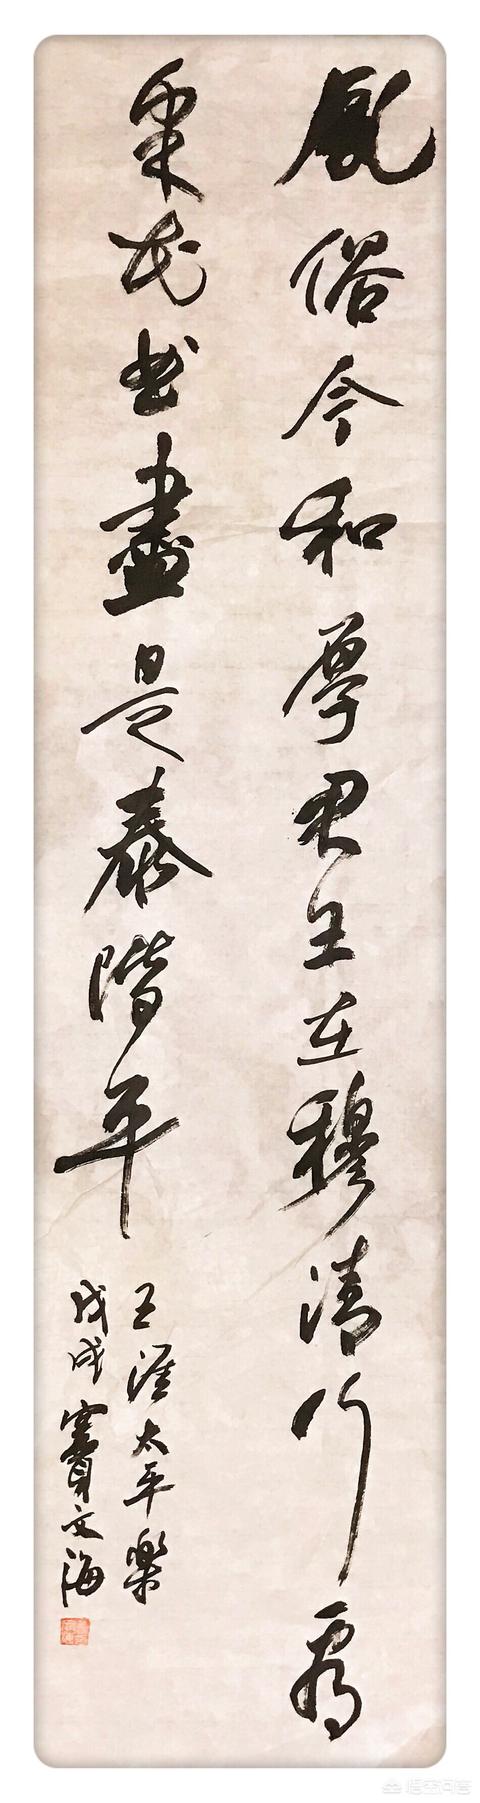 風俗今和厚君王在穆清行看
采花曲盡是泰階平
王涯太平樂
戊戌竇文海
悟空问答